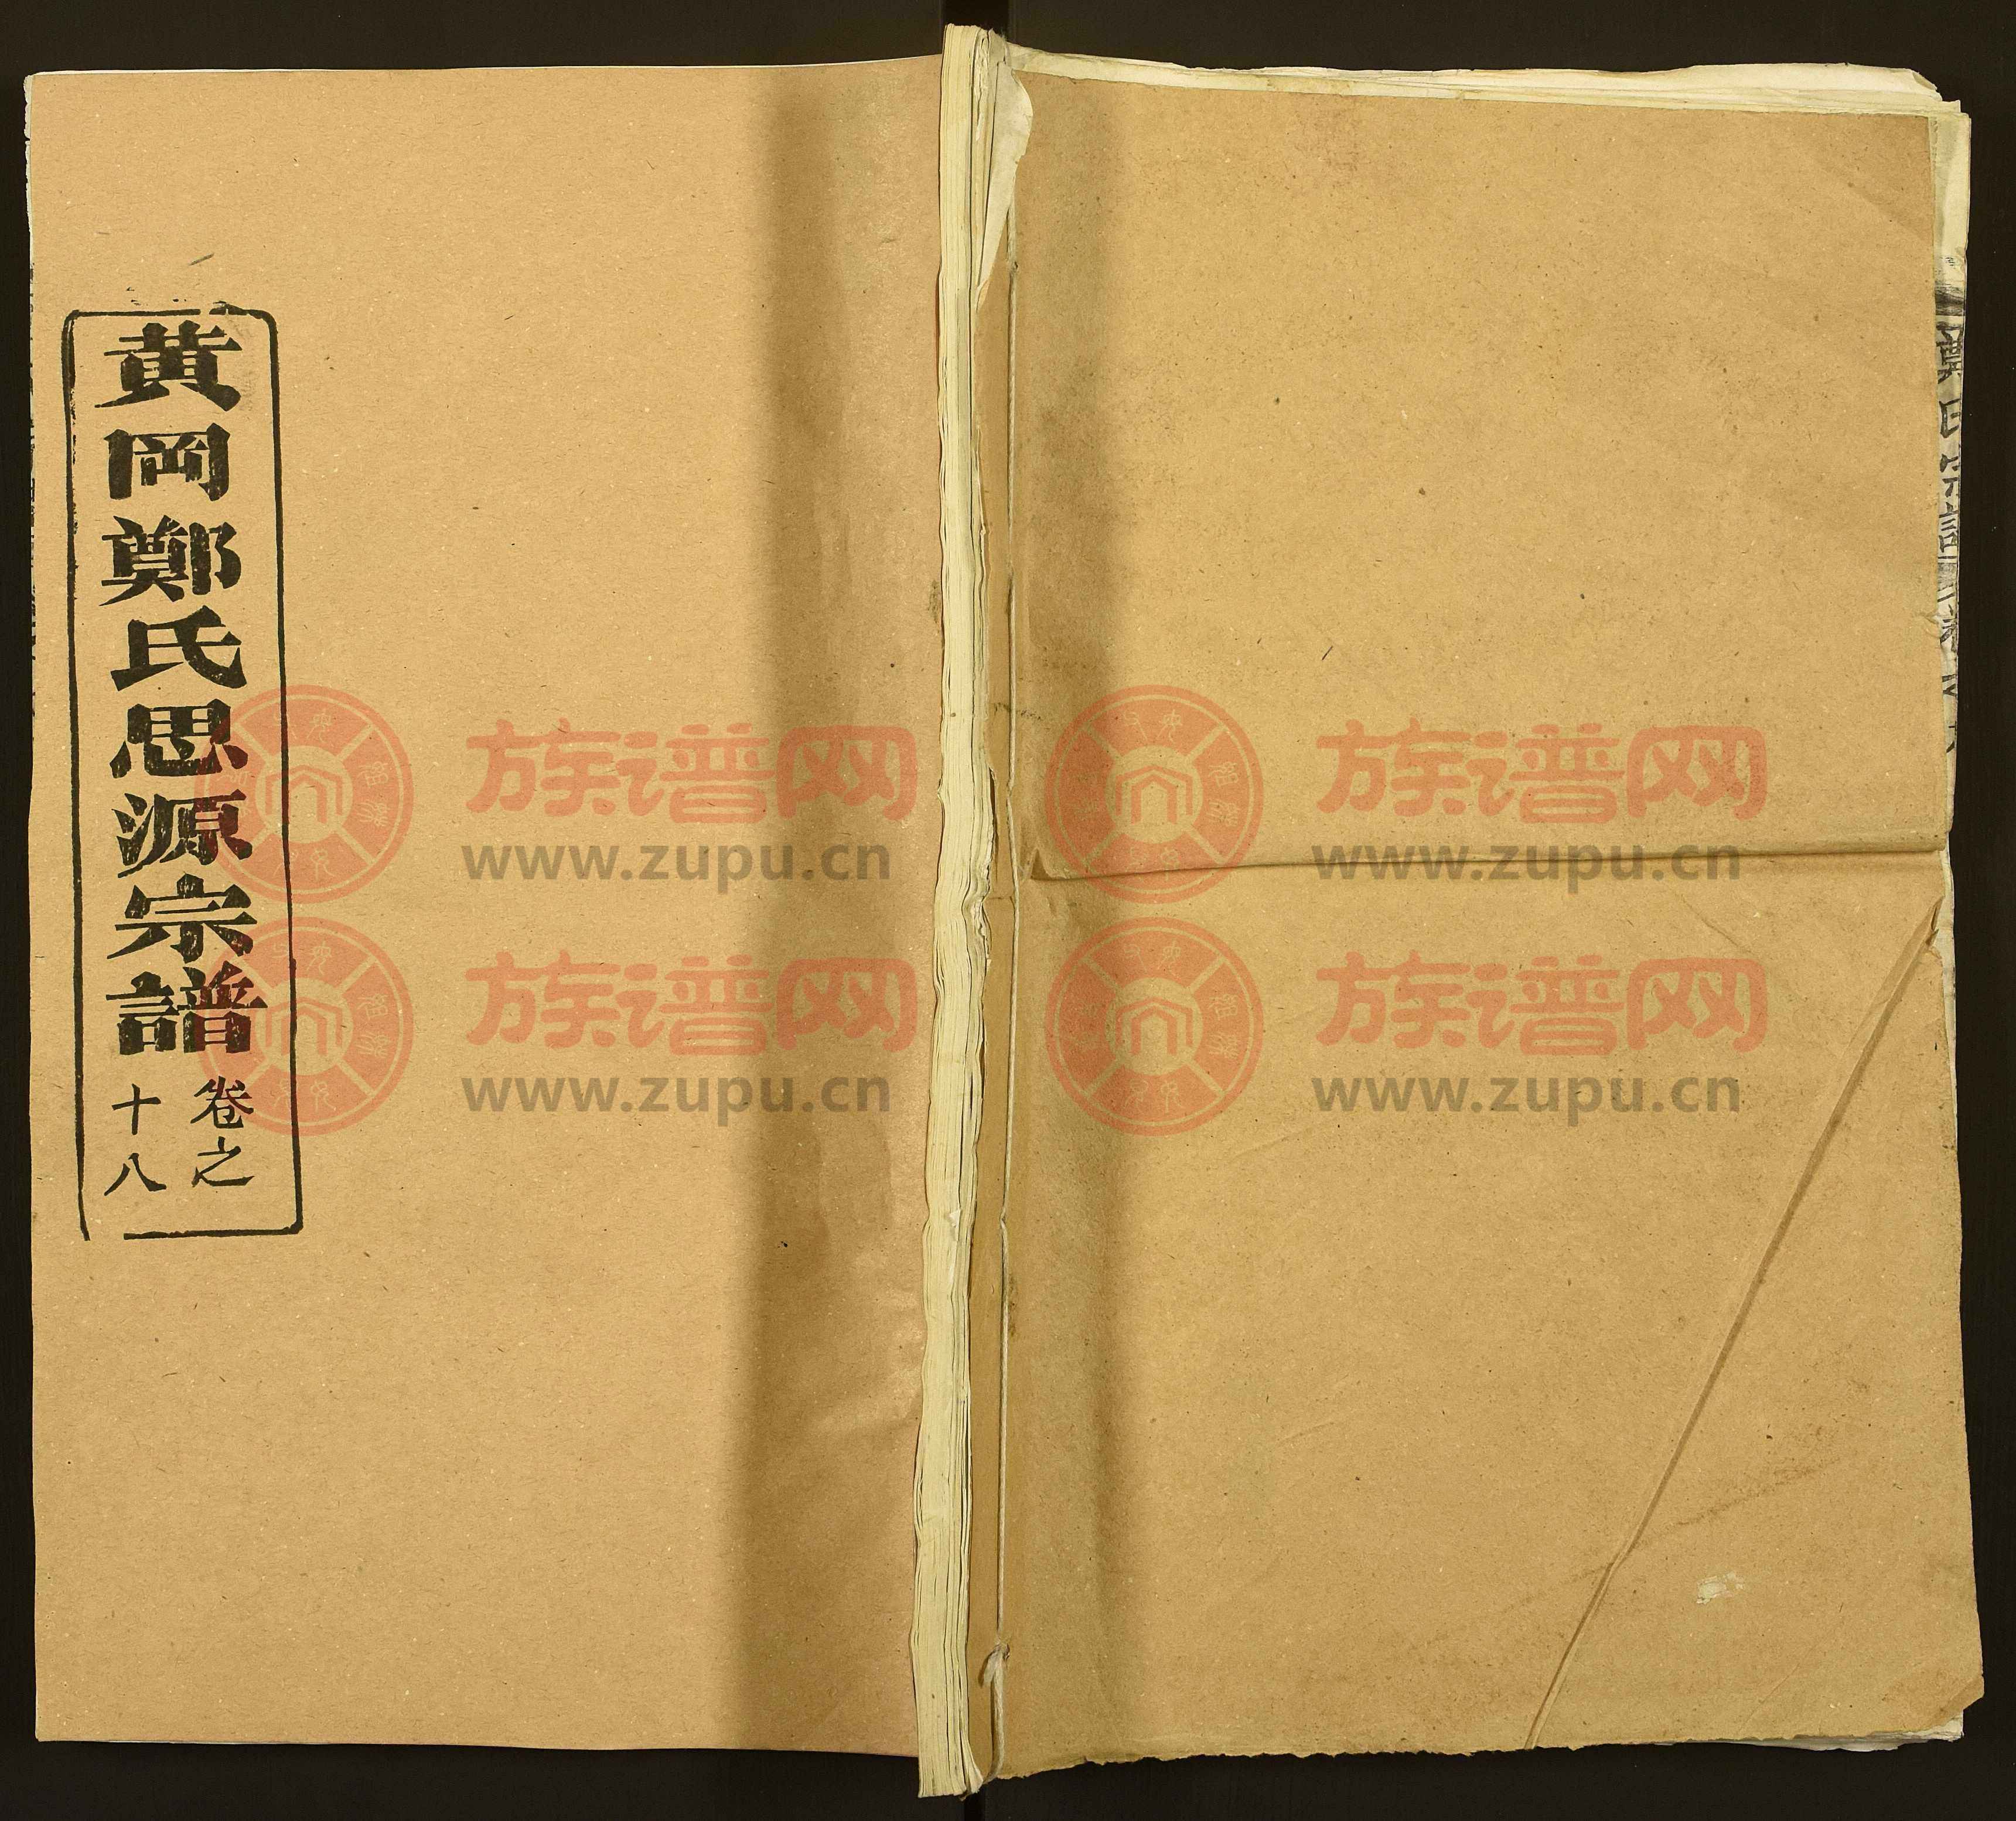 黄岡鄭氏思源宗譜
卷之
十八
族谱网
www.zupu.cn
族谱网
www.zupu.cn
族谱网
www.zupu.cn
族谱网
www.zupu.cn